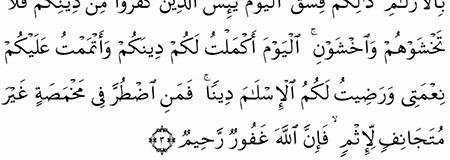 بِٱلْأَزْلَٰمِ ۚ ذَٰلِكُمْ فِسْقٌ ۗ ٱلْيَوْمَ يَئِسَ ٱلَّذِينَ كَفَرُوا۟ مِن دِينِكُمْ فَلَا
تَخْشَوْهُمْ وَٱخْشَوْنِ ۚ ٱلْيَوْمَ أَكْمَلْتُ لَكُمْ دِينَكُمْ وَأَتْمَمْتُ عَلَيْكُمْ
نِعْمَتِى وَرَضِيتُ لَكُمُ ٱلْإِسْلَٰمَ دِينًا ۚ فَمَنِ ٱضْطُرَّ فِى مَخْمَصَةٍ غَيْرَ
مُتَجَانِفٍ لِّإِثْمٍ ۙ فَإِنَّ ٱللَّهَ غَفُورٌ رَّحِيمٌ ﴿٣﴾